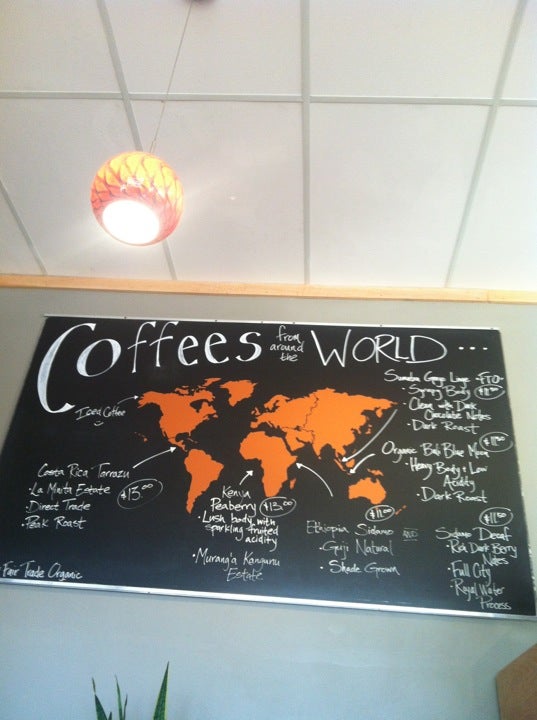 Coffees from around the WORLD ...
Iced Coffee
Costa Rica Terrazu
· La Minita Estate
· Direct Trade
· Peak Roast
$13.00
Kenya
Peaberry $13.00
· Lush body with
sparkling fruited
acidity
· Murang'a Kangunu
Estate
$11.00
Ethiopia Sidamo AND
· Guji Natural
· Shade Grown
Sumatra Gayo Linge - FTO
· Syrupy Body
· Clean with Dark
Chocolate Notes
· Dark Roast
$11.50
Organic Bali Blue Moon
· Heavy Body + Low
Acidity
· Dark Roast
$11.50
Sidamo Decaf
· Rich Dark Berry
Notes
· Full City
· Royal Water
Process
Fair Trade Organic